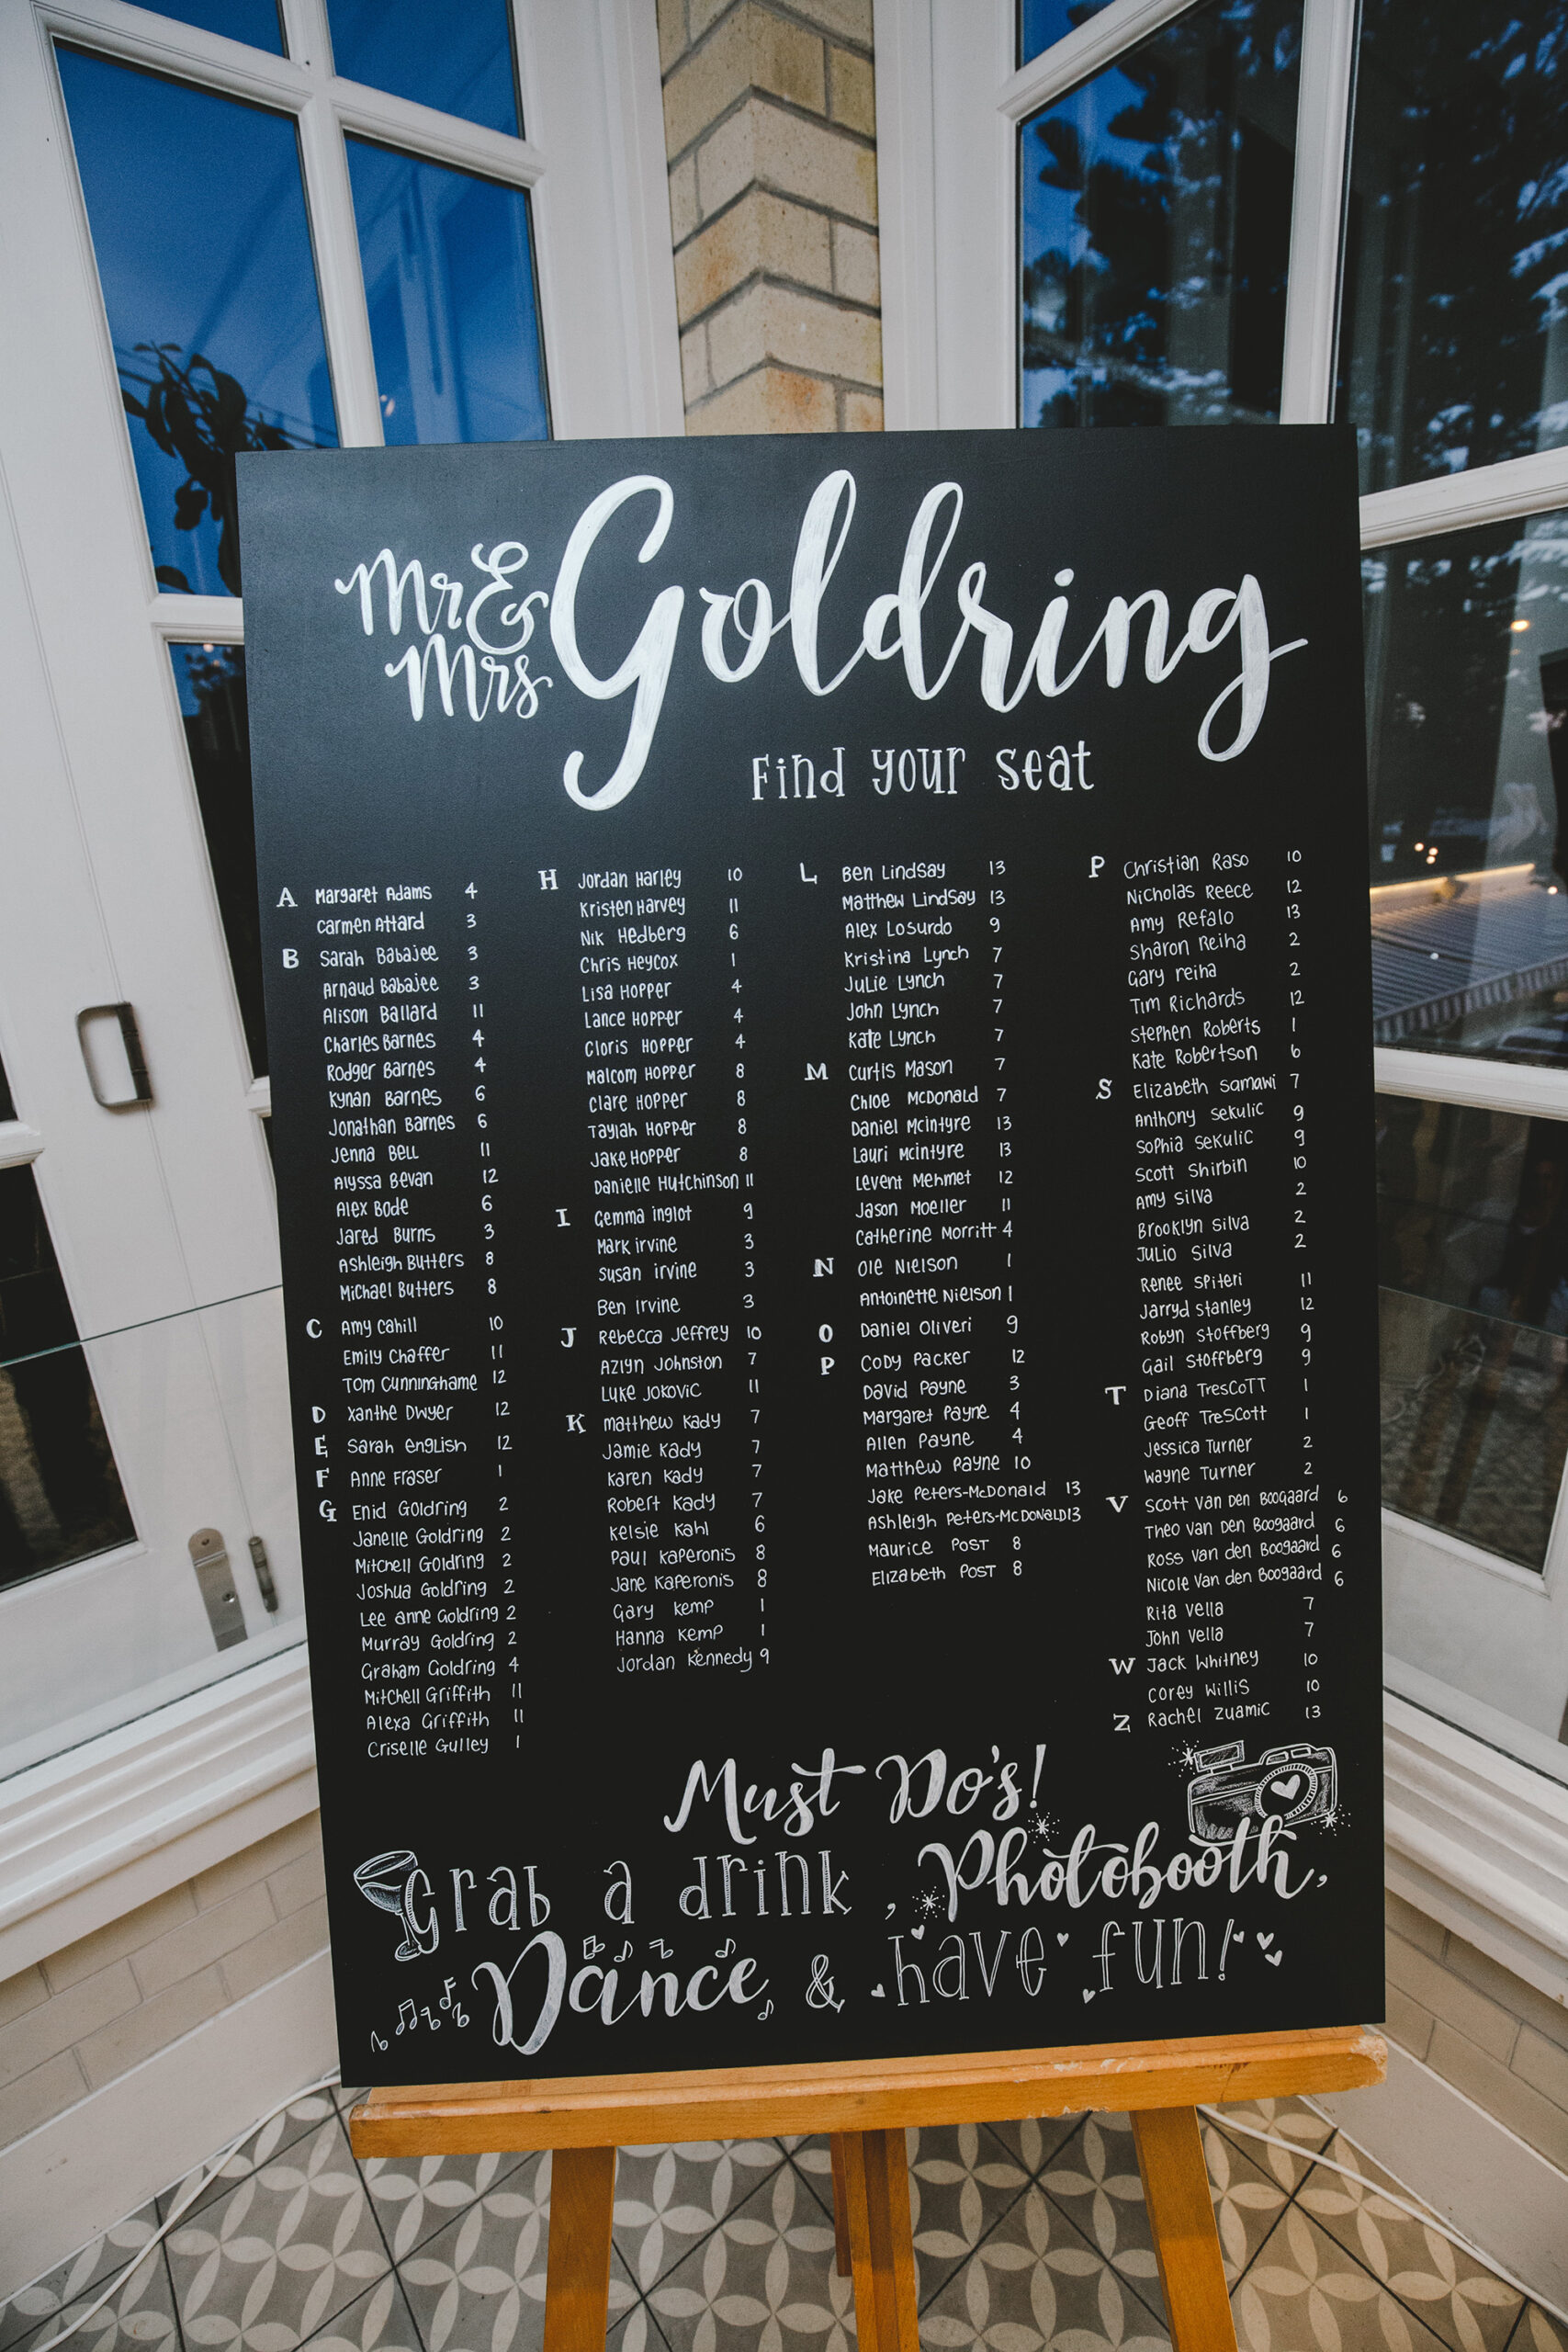 Mr &
Mrs
Goldring
Find your seat
A Margaret Adams 4
Carmen Attard 3
B Sarah Babajee 3
Arnaud Babajee 3
Alison Ballard 11
Charles Barnes 4
Rodger Barnes 4
Kynan Barnes 6
Jonathan Barnes 6
Jenna Bell 11
Alyssa Bevan 12
Alex Bode 6
Jared Burns 3
Ashleigh Butters 8
Michael Butters 8
C Amy Cahill 10
Emily Chaffer 11
Tom Cunninghame 12
D Xanthe Dwyer 12
E Sarah English 12
F Anne Fraser 1
G Enid Goldring 2
Janelle Goldring 2
Mitchell Goldring 2
Joshua Goldring 2
Lee anne Goldring 2
Murray Goldring 2
Graham Goldring 4
Mitchell Griffith 11
Alexa Griffith 11
Criselle Gulley 1
H Jordan Harley 10
Kristen Harvey 11
Nik Hedberg 6
Chris Heycox 1
Lisa Hopper 4
Lance Hopper 4
Cloris Hopper 4
Malcom Hopper 8
Clare Hopper 8
Taylah Hopper 8
Jake Hopper 8
Danielle Hutchinson 11
I Gemma inglot 9
Mark irvine 3
Susan irvine 3
Ben Irvine 3
J Rebecca Jeffrey 10
Azlyn Johnston 7
Luke Jokovic 11
K Matthew Kady 7
Jamie Kady 7
Karen Kady 7
Robert Kady 7
Kelsie Kahl 6
Paul Kaperonis 8
Jane Kaperonis 8
Gary Kemp 1
Hanna Kemp 1
Jordan Kennedy 9
L Ben Lindsay 13
Matthew Lindsay 13
Alex Losurdo 9
Kristina Lynch 7
Julie Lynch 7
John Lynch 7
Kate Lynch 7
M Curtis Mason 7
Chloe McDonald 7
Daniel McIntyre 13
Lauri McIntyre 13
Levent Mehmet 12
Jason Moeller 11
Catherine Morritt 4
N Ole Nielson 1
Antoinette Nielson 1
O Daniel Oliveri 9
P Cody Packer 12
David Payne 3
Margaret Payne 4
Allen Payne 4
Matthew Payne 10
Jake Peters-McDonald 13
Ashleigh Peters-McDonald 13
Maurice Post 8
Elizabeth Post 8
P Christian Raso 10
Nicholas Reece 12
Amy Refalo 13
Sharon Reiha 2
Gary reiha 2
Tim Richards 12
Stephen Roberts 1
Kate Robertson 6
S Elizabeth Samawi 7
Anthony Sekulic 9
Sophia Sekulic 9
Scott Shirbin 10
Amy Silva 2
Brooklyn Silva 2
Julio Silva 2
Renee Spiteri 11
Jarryd Stanley 12
Robyn Stoffberg 9
Gail Stoffberg 9
T Diana Trescott 1
Geoff Trescott 1
Jessica Turner 2
Wayne Turner 2
V Scott Van Den Boogaard 6
Theo Van Den Boogaard 6
Ross Van den Boogaard 6
Nicole Van den Boogaard 6
Rita Vella 7
John Vella 7
W Jack Whitney 10
Corey Willis 10
Z Rachel Zuamic 13
Must Do's!
Grab a drink, Photobooth,
Dance & have fun!